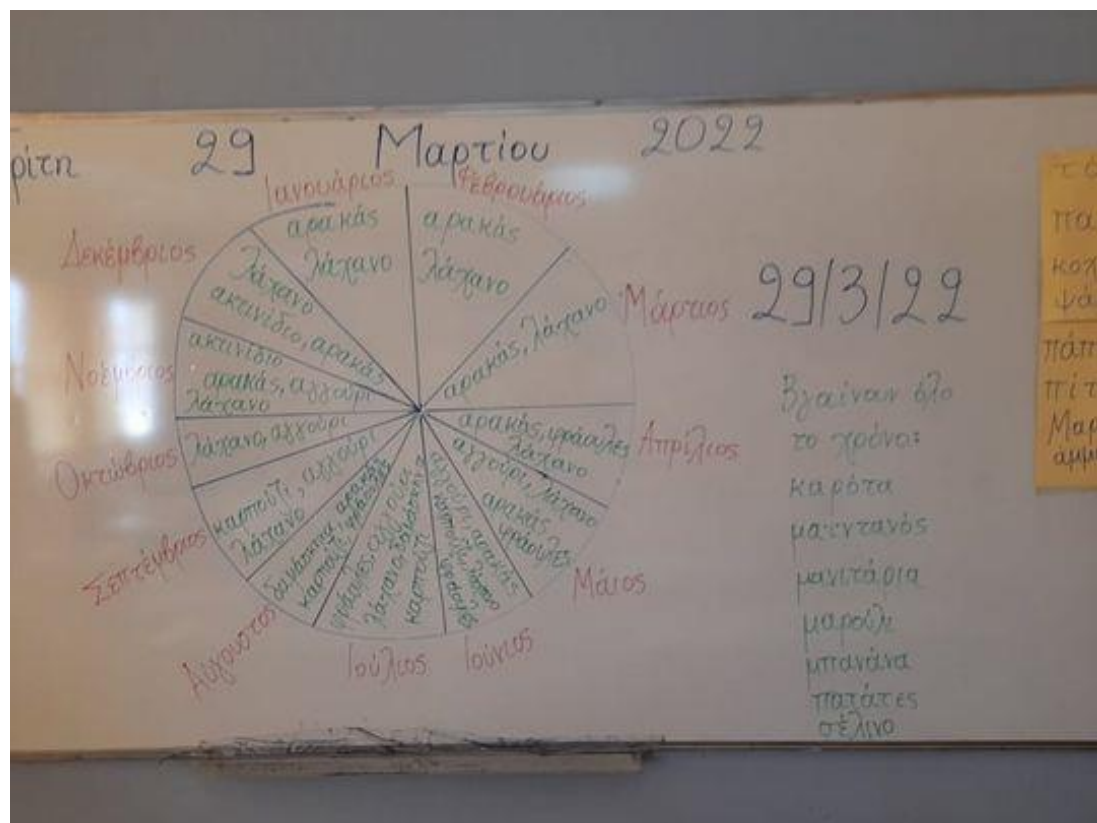 ρίτη 29 Μαρτίου 2022
Ιανουάριος
αρακάς
λάχανο
Φεβρουάριος
αρακάς
λάχανο
Μάρτιος
αρακάς, λάχανο
Απρίλιος
αρακάς, φράουλες
λάχανο
Μάιος
αγγούρι, λάχανο
αρακάς
φράουλες
Ιούνιος
αγγούρι, αρακάς
καρπούζι, λάχανο
φράουλες
Ιούλιος
φράουλες, αγγούρι
λάχανο, δαμάσκηνα
καρπούζι
Αύγουστος
δαμάσκηνα, αρακάς
καρπούζι, φράουλες
Σεπτέμβριος
καρπούζι, αγγούρι
λάχανο
Οκτώβριος
λάχανο, αγγούρι
Νοέμβριος
ακτινίδιο
αρακάς, αγγούρι
λάχανο
Δεκέμβριος
λάχανο
ακτινίδιο, αρακάς
29/3/22
Βγαίνουν όλο
το χρόνο:
καρότα
μαϊντανός
μανιτάρια
μαρούλι
μπανάνα
πατάτες
σέλινο
τό
πα
κοχ
ψά
πάπ
πίτ
Μαρ
άμμ